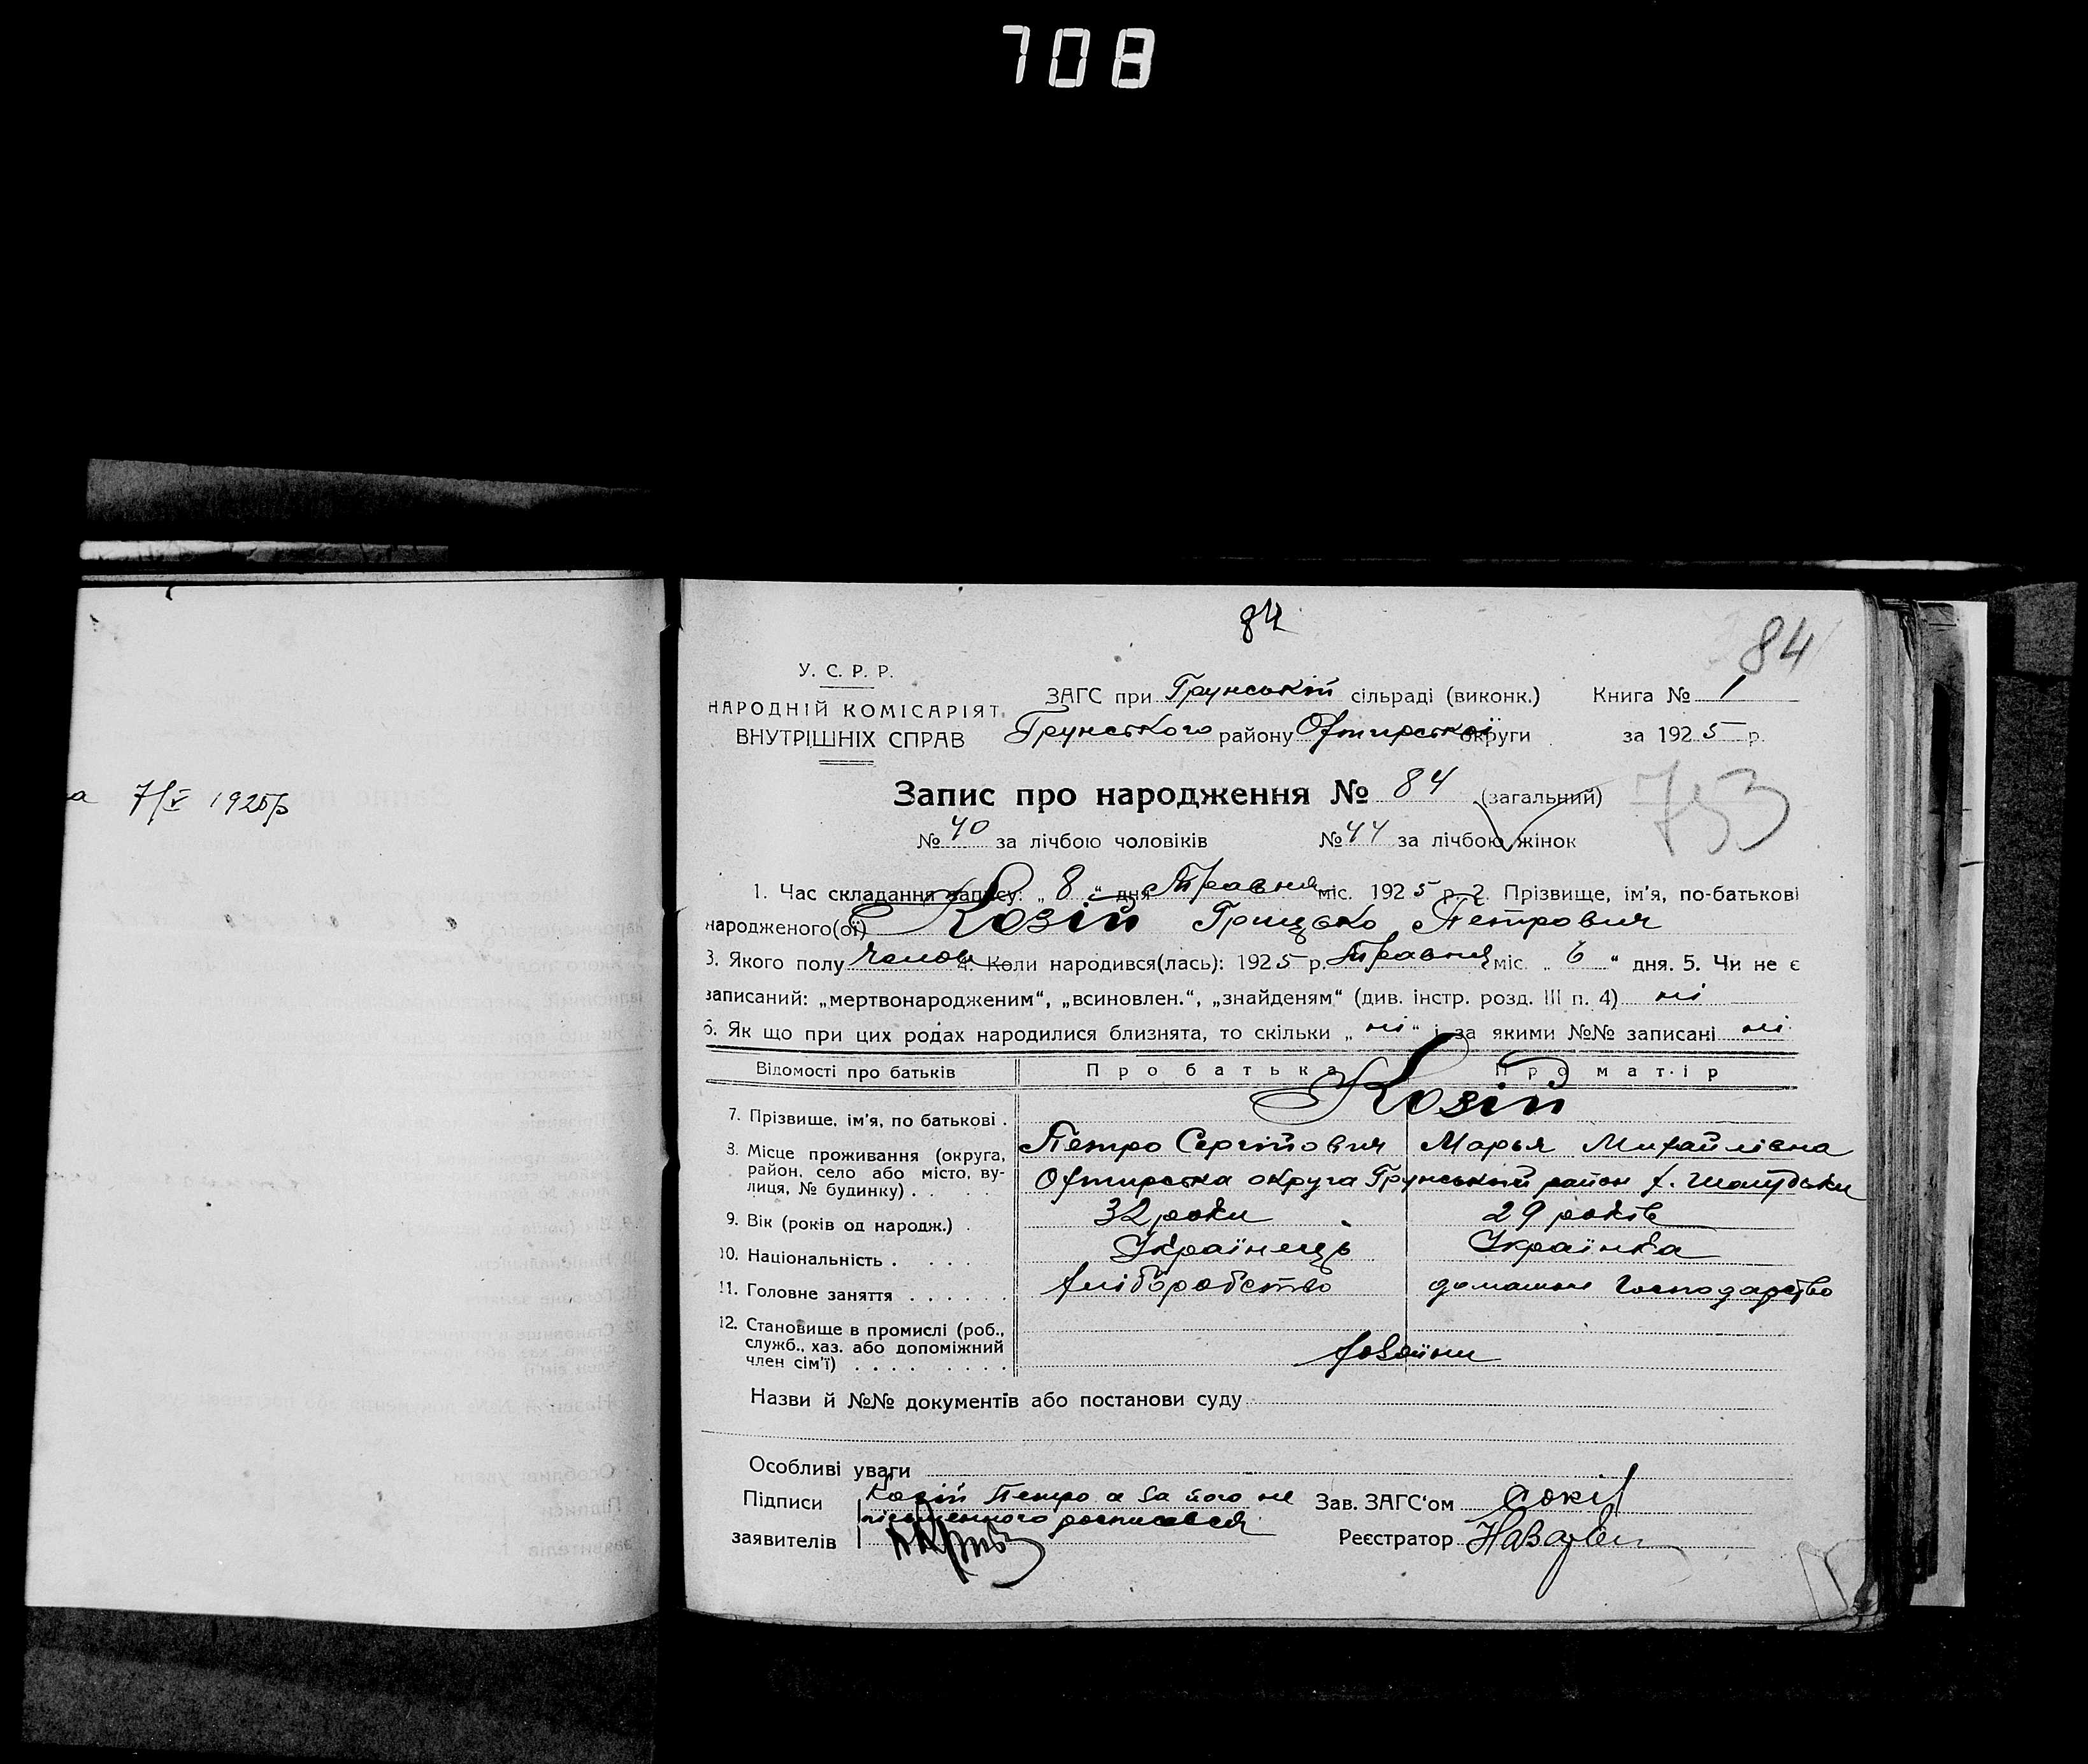 708
а 7/V 1925р
84
84
У. С. Р. Р.
НАРОДНІЙ КОМІСАРІЯТ
ВНУТРІШНІХ СПРАВ
ЗАГС при Грунській сільраді (виконк.) Книга № 1
Грунського району Охтирської округи за 1925 р.
Запис про народження № 84 (загальний)
753
№ 40 за лічбою чоловіків № 44 за лічбою жінок
1. Час складання запису: „ 8 “ дня Травня міс. 1925 р. 2. Прізвище, ім'я, по-батькові
народженого(ої) Козій Грицько Петрович
3. Якого полу чолов 4. Коли народився(лась): 1925 р. Травня міс. „ 6 “ дня. 5. Чи не є
записаний: „мертвонародженим“, „всиновлен.“, „знайденям“ (див. інстр. розд. III п. 4) ні
6. Як що при цих родах народилися близнята, то скільки „ ні “ і за якими №№ записані ні
Відомості про батьків Про батька Про матір
7. Прізвище, ім'я, по батькові . Козій
Петро Сергійович Марья Михайлівна
8. Місце проживання (округа, район, село або місто, ву-
лиця, № будинку) . . Охтирська округа Грунський район х.
9. Вік (років од народж.) . 32 роки 29 років
10. Національність . . . . Українець Українка
11. Головне заняття . . . . . . хліборобство домашнє господарство
12. Становище в промислі (роб.,
служб., хаз. або допоміжний
член сім'ї) . . . . . . . . хозяїни
Назви й №№ документів або постанови суду
Особливі уваги
Підписи Козій Петро а за його не Зав. ЗАГС'ом
письменного росписався
заявителів Реєстратор